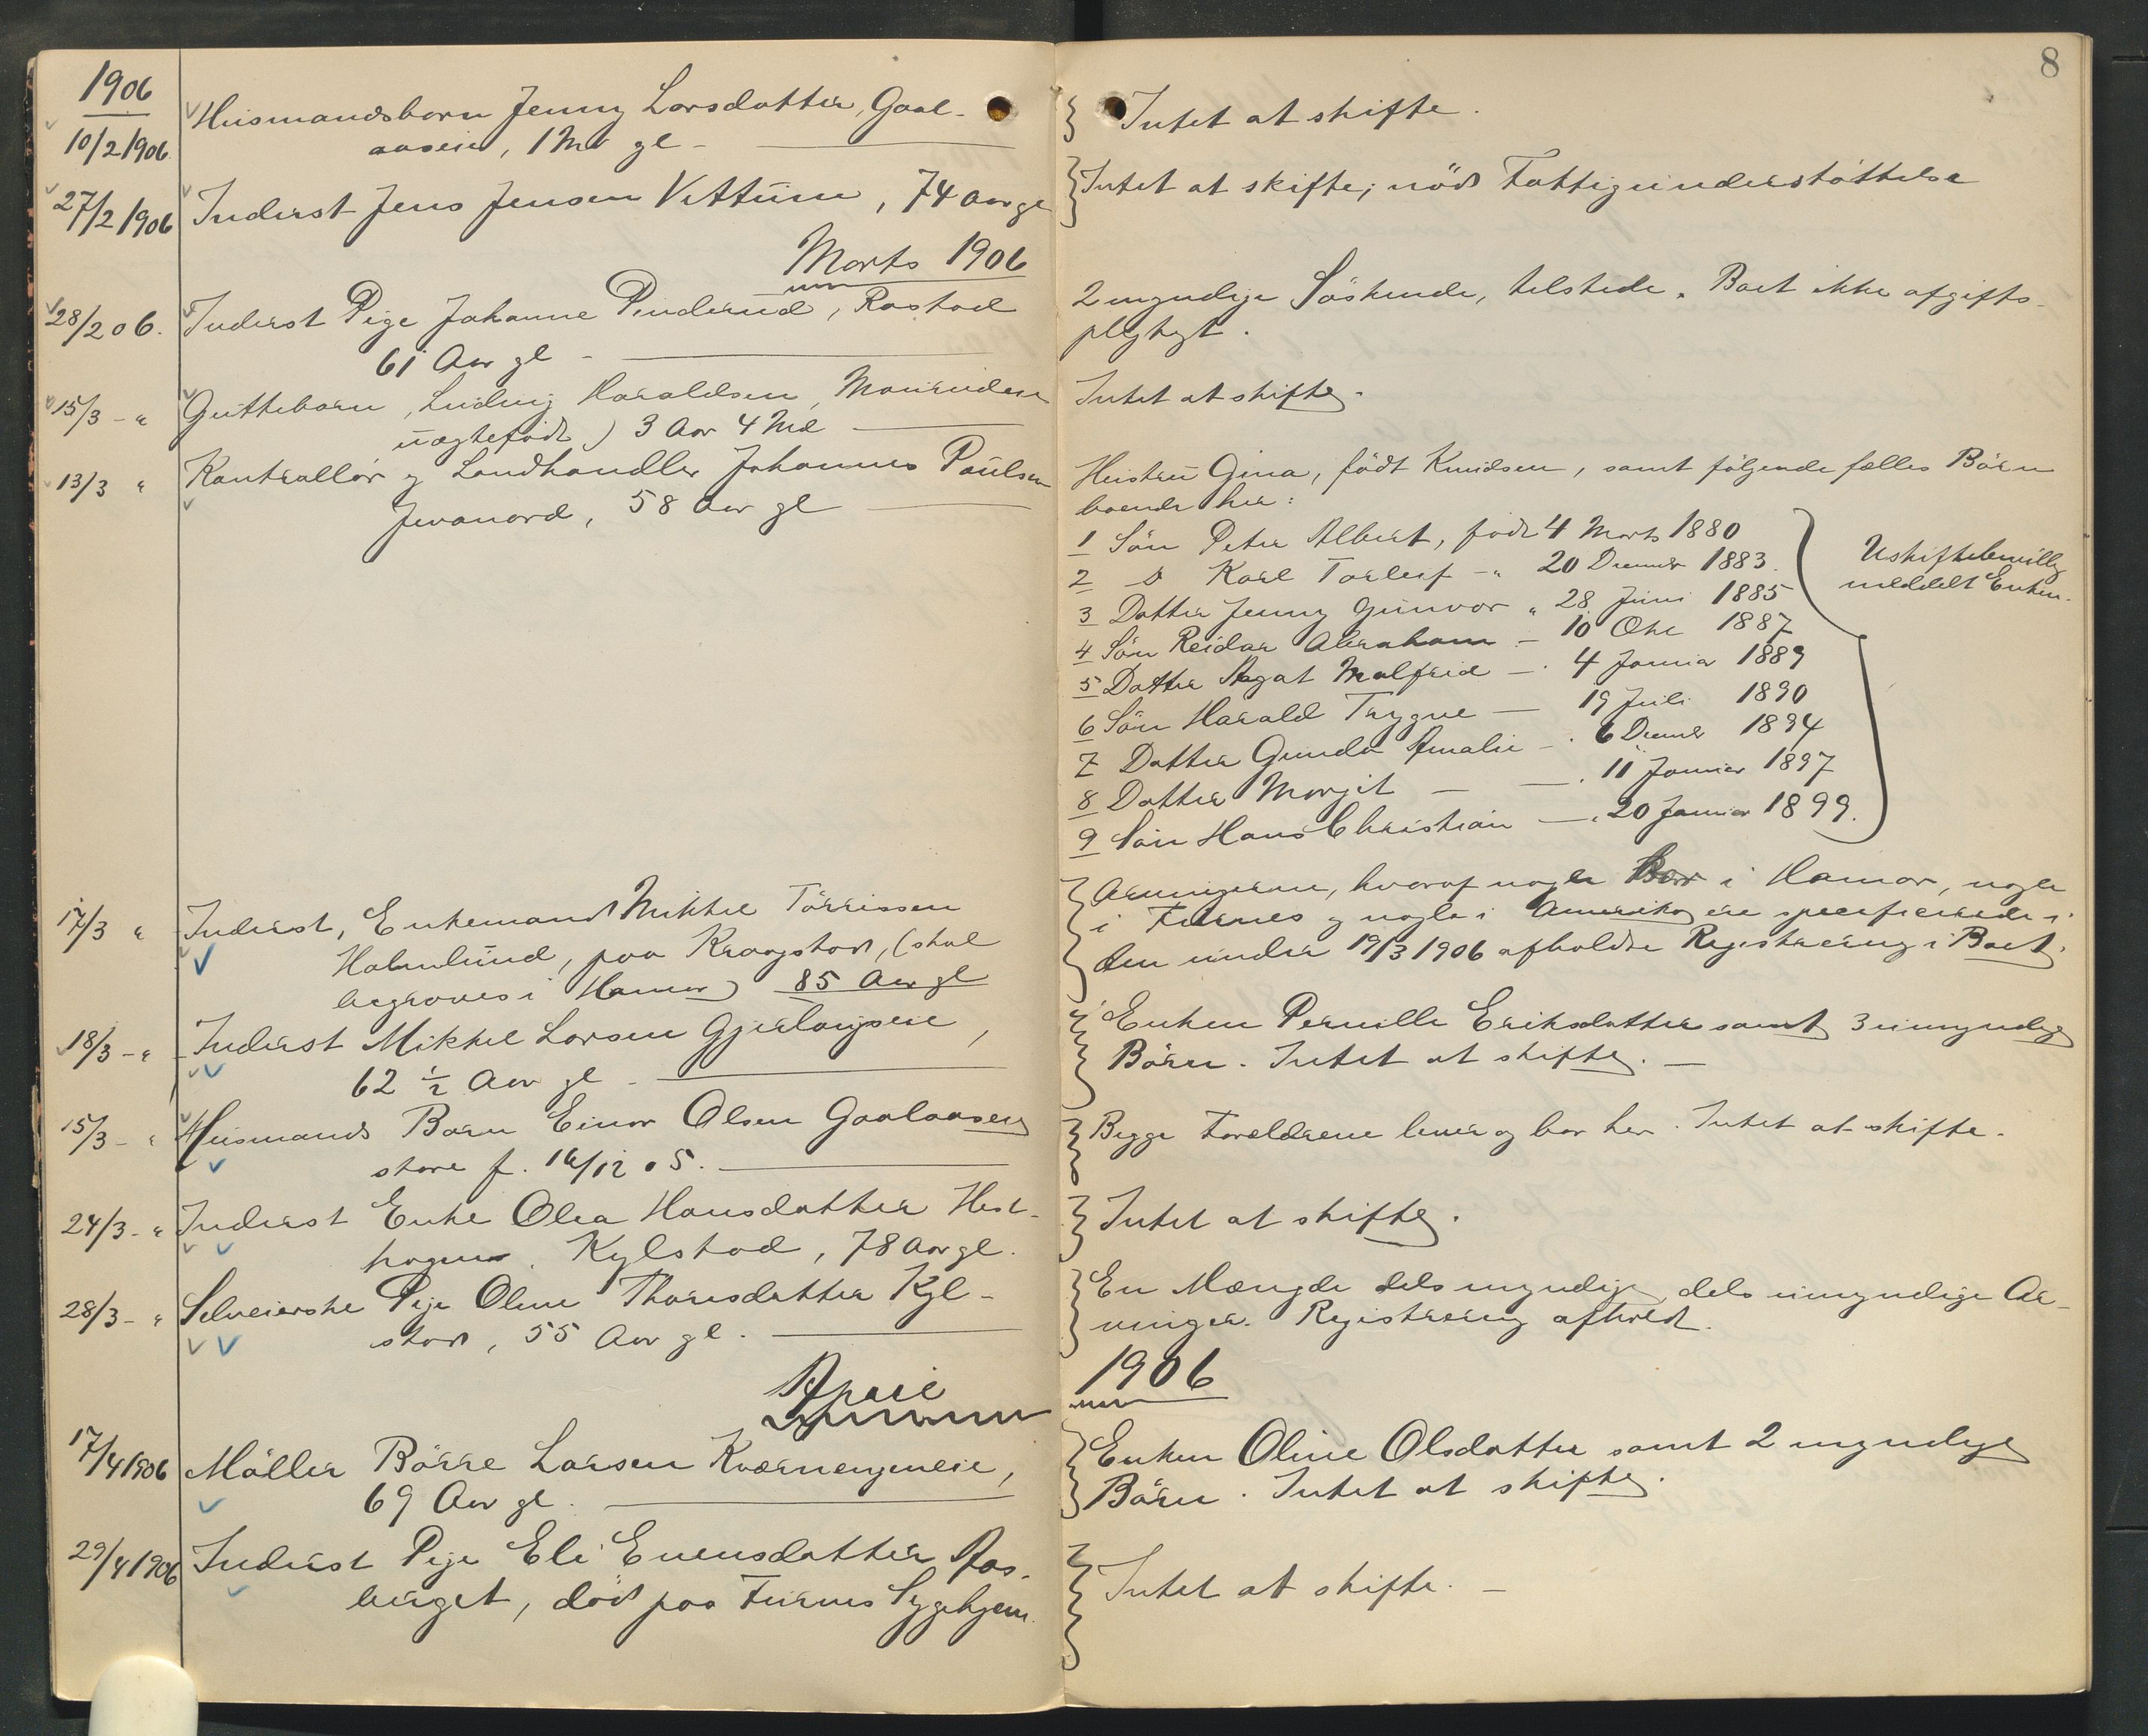 8
1906
10/2 1906. Husmandsbarn Jenny Larsdatter, Gaal-
aaseie, 1 Md gl -
Intet at skifte.
27/2 1906 Inderst Jens Jensen Vittum, 74 Aar gl
Intet at skifte; nöd Fattigunderstöttelse
Marts 1906
28/2 06. Inderst Pige Johanne Penderud, Rastad
61 Aar gl -
2 myndige Söskende, tilstede. Boet ikke afgifts-
pligtigt.
15/3 - " Guttebarn, Ludvig Haraldsen,
uægtefödt) 3 Aar 4 Md
Intet at skifte.
13/3 " Kontrollör og Landhandler Johannes Paulsen
Jevanord, 58 Aar gl
Hustru Gina, födt Knudsen, samt fölgende fælles Börn
boende her:
1 Sön Peter Albert, födt 4 Marts 1880
2 D Karl Torleif - " 20 Decembr 1883.
3 Datter Jenny Gunvor " 28 Juni 1885
4 Sön Reidar Abraham - 10 Okt 1887
5 Datter Aagot Malfrid - . 4 Januar 1889
6 Sön Harald Trygve - 19 Juli 1890
7 Datter Gunda Amalie - . 6 Decembr 1894
8 Datter Margit - - . 11 Januar 1897
9 Sön Hans Christian - . 20 Januar 1899.
Uskiftebevillg
meddelt Enken.
17/3 " Inderst, Enkemand Mikkel Törrissen
Holmlund, paa Kraagstad, (skal
begraves i Hamar) 85 Aar gl
Arvingerne, hvoraf nogle Bor i Hamar, nogle
i Furnes og nogle i Amerika, ere specificerede i
den under 19/3 1906 afholdte Registrering i Boet.
18/3 - " Inderst Mikkel Larsen Gjerlaugseie,
62 ½ Aar gl -
Enken Pernille Eriksdatter samt 3 umyndige
Börn. Intet at skifte. -
15/3 - " Husmands Barn Einar Olsen Gaalaasen
store f. 16/12 05.
Begge Forældrene lever og bor her. Intet at skifte.
24/3 - " Inderst Enke Olea Hansdatter Hest-
hagen, Kylstad, 78 Aar gl.
Intet at skifte.
28/3 - " Selveierske Pige Oline Thoresdatter Kyl-
stad, 55 Aar gl.
En Mængde dels myndige, dels umyndige Ar-
vinger. Registrering afholdt.
April
1906
17/4 1906 Möller Börre Larsen Kværnengeneie,
69 Aar gl.
Enken Oline Olsdatter samt 2 myndige
Börn. Intet at skifte.
29/4 1906 Inderst Pige Eli Evensdatter Aas-
berget, död paa Furnes Sygehjem.
Intet at skifte. -